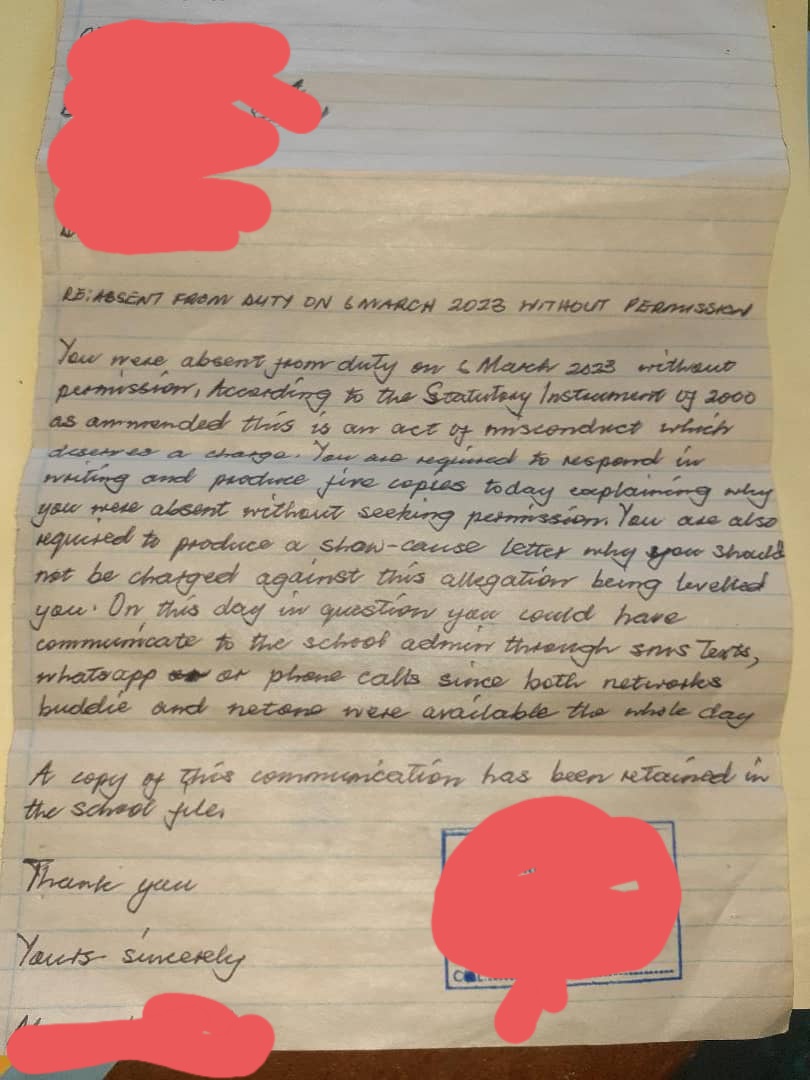 RE: ABSENT FROM DUTY ON 6 MARCH 2023 WITHOUT PERMISSION
You were absent from duty on 6 March 2023 without
permission, According to the Statutory Instrument of 2000
as ammended this is an act of misconduct which
deserves a charge. You are required to respond in
writing and produce five copies today explaining why
you were absent without seeking permission. You are also
required to produce a show-cause letter why you should
not be charged against this allegation being levelled
you. On this day in question you could have
communicate to the school admin through sms Texts,
whatsapp or phone calls since both networks
buddie and netone were available the whole day
A copy of this communication has been retained in
the school file.
Thank you
Yours sincerely